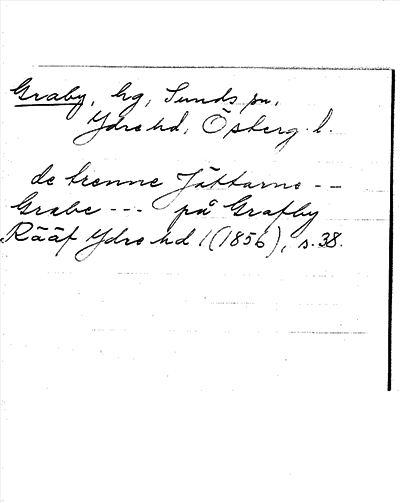 Graby, hg, Sunds sn,
Ydre hd, Östergː l.
de trenne Jättarne --
Grabe --- på Grafby
Rääf Ydre hd 1 (1856), s. 38.